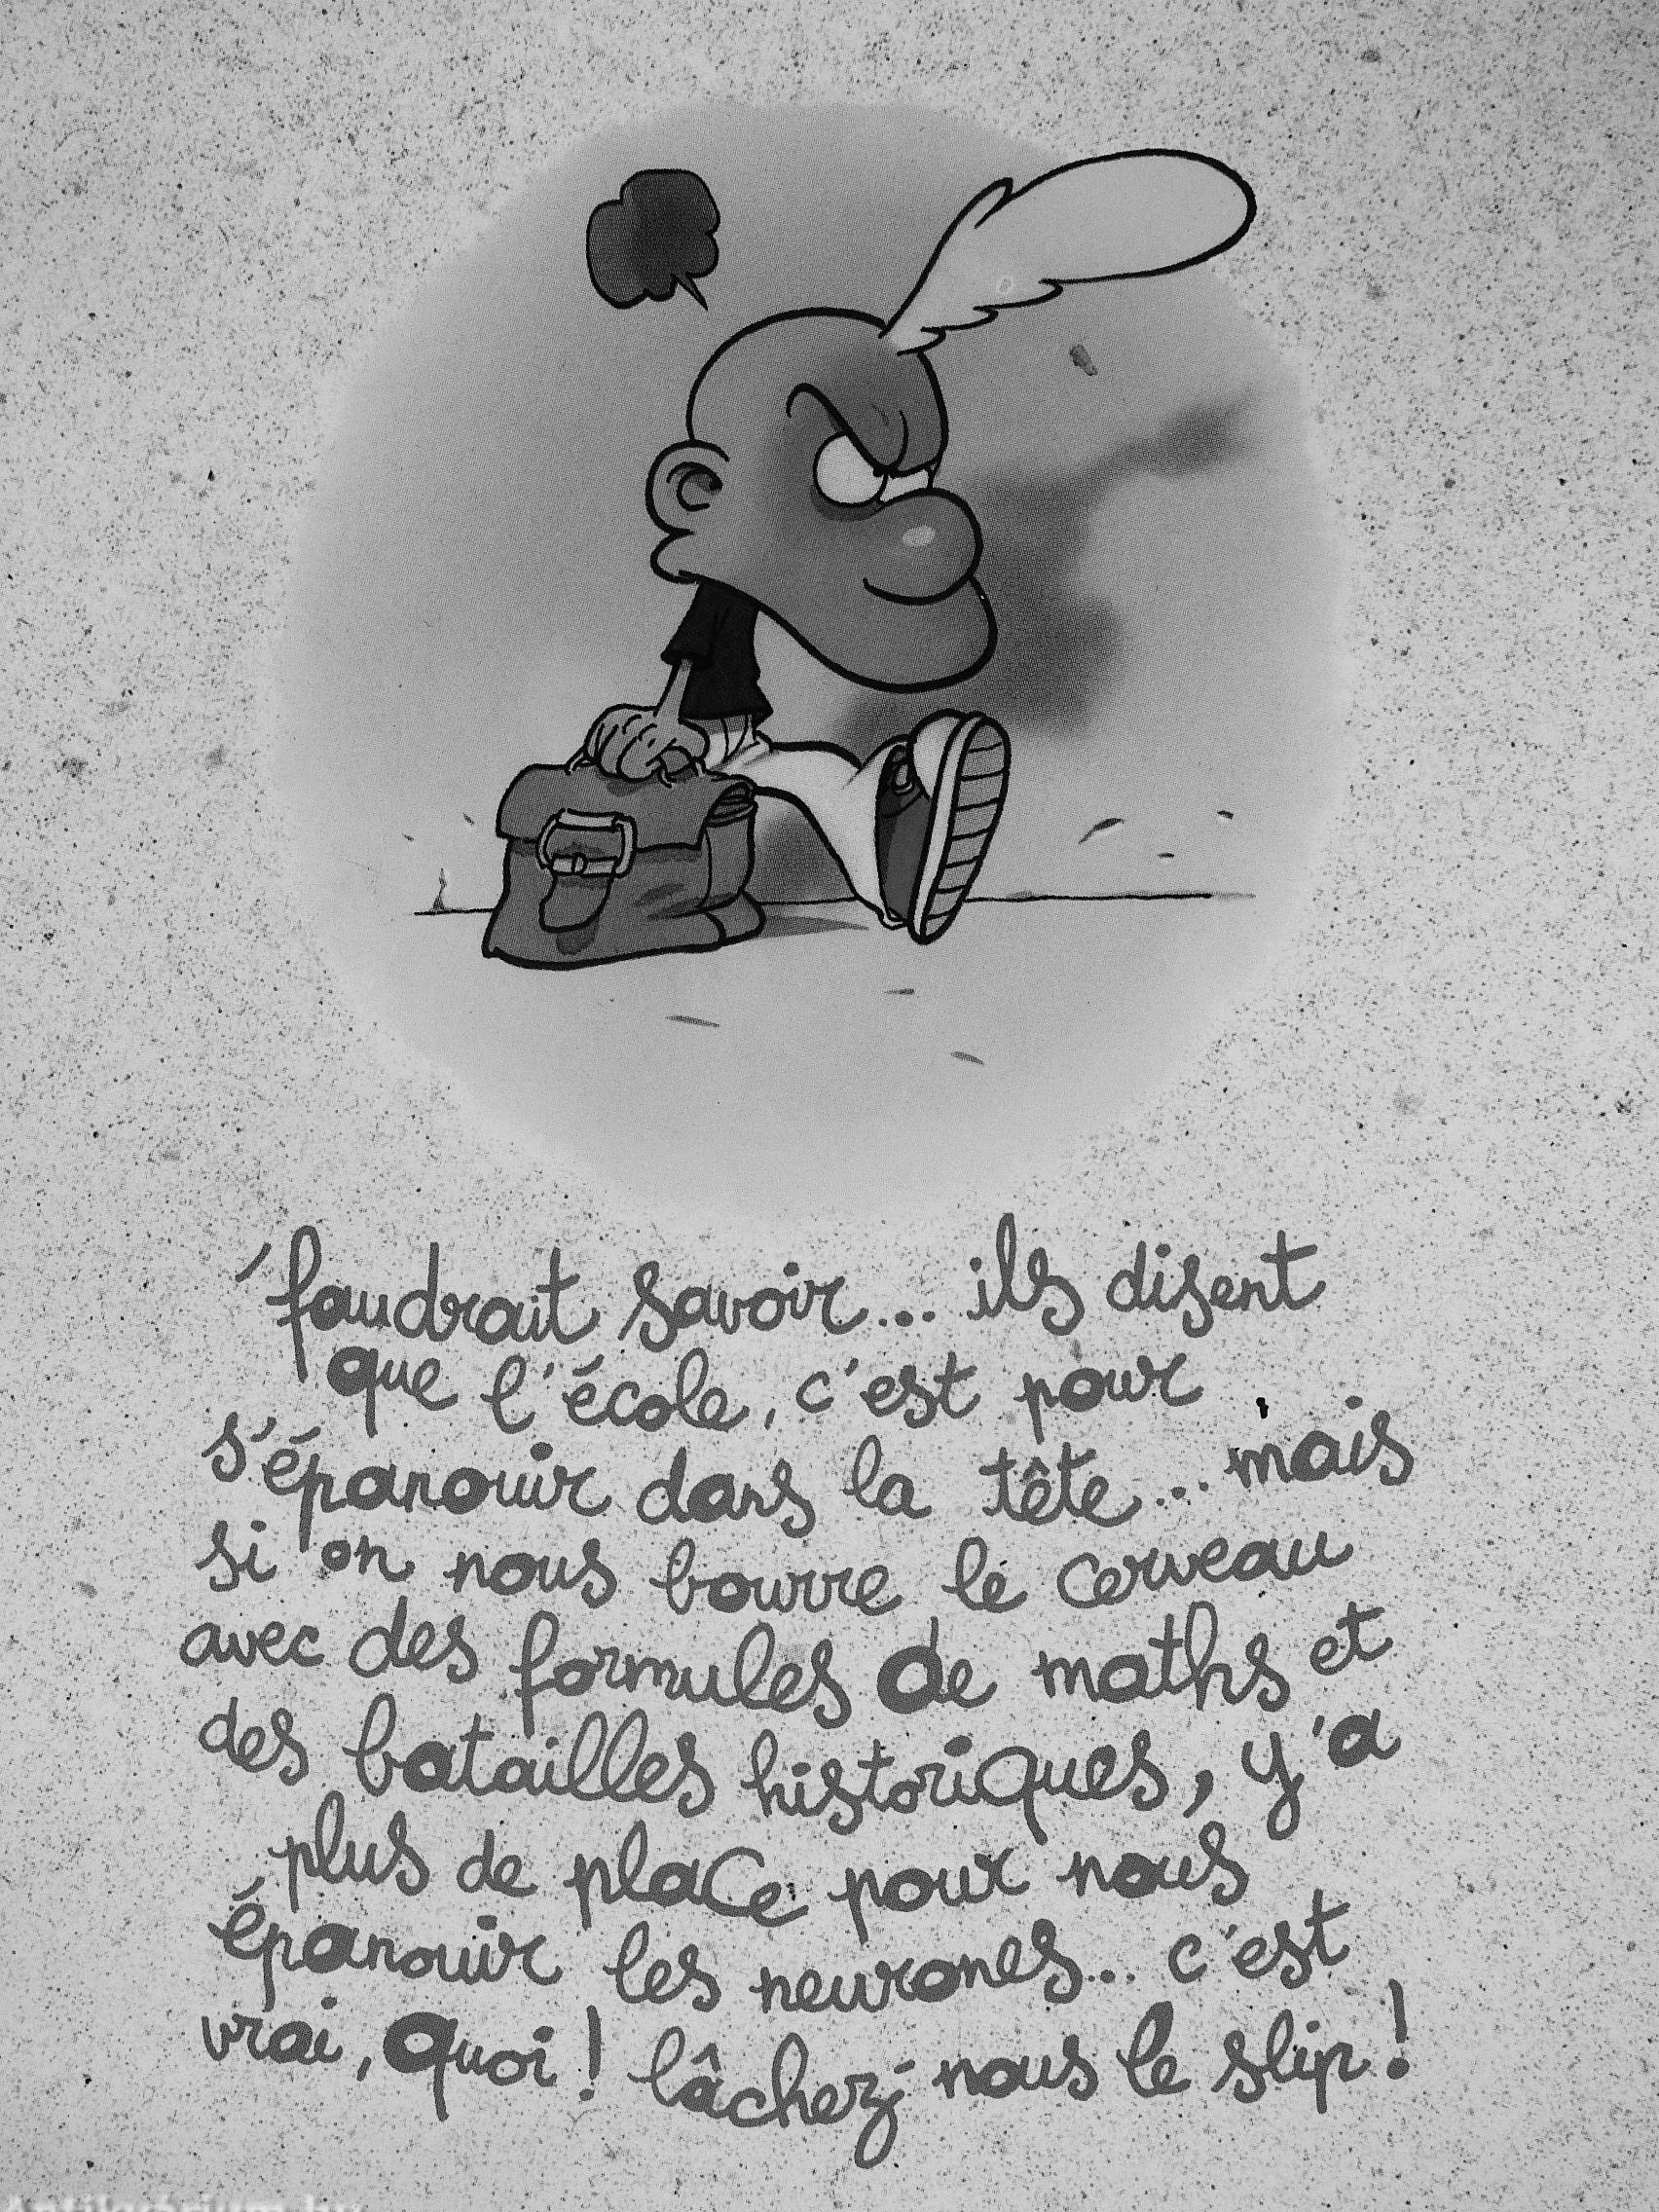 'faudrait savoir... ils disent
que l'école, c'est pour
s'épanouir dans la tête... mais
si on nous bourre le cerveau
avec des formules de maths et
des batailles historiques, y'a
plus de place pour nous
épanouir les neurones... c'est
vrai, quoi! lâchez-nous le slip!
Antikvárium.hu